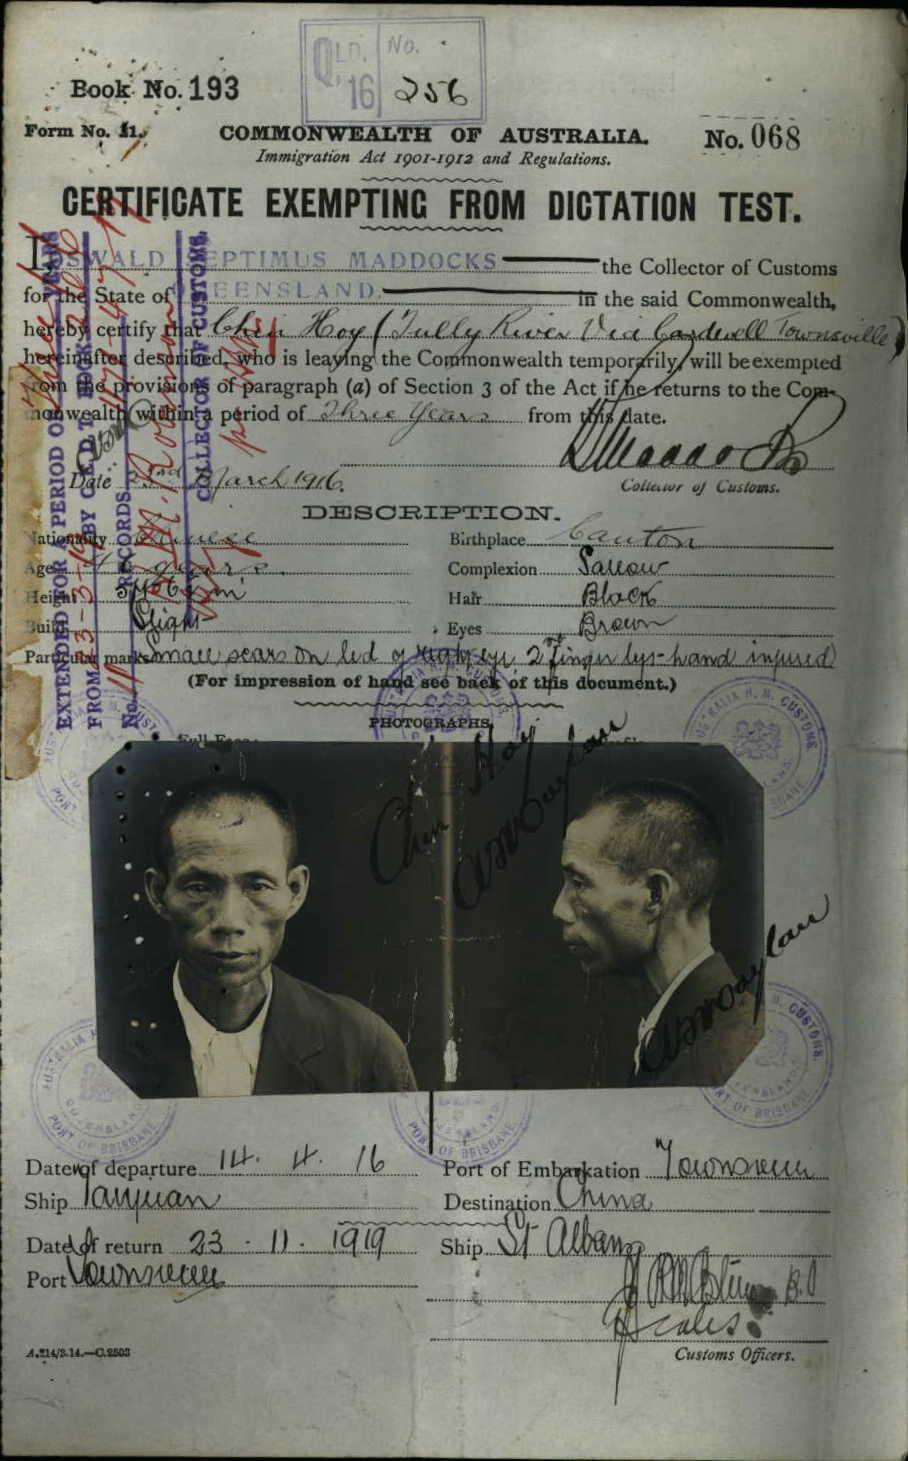 QLD. No.
Q. 16 256
Book No. 193
Form No. 11.
COMMONWEALTH OF AUSTRALIA. No. 068
Immigration Act 1901-1912 and Regulations.
CERTIFICATE EXEMPTING FROM DICTATION TEST.
I OSWALD SEPTIMUS MADDOCKS the Collector of Customs
for the State of QUEENSLAND. in the said Commonwealth,
hereby certify that Chin Hoy (Tully River Via Cardwell Townsville)
hereinafter described, who is leaving the Commonwealth temporarily, will be exempted
from the provisions of paragraph (a) of Section 3 of the Act if he returns to the Com-
monwealth within a period of Three Years from this date.
Date 23rd March 1916.
Collector of Customs.
EXTENDED FOR A PERIOD OF YEARS
FROM 23-3-19 BY C.E.D.T. BOOK
No. RECORDS
COLLECTOR OF CUSTOMS.
DESCRIPTION.
Nationality Chinese Birthplace Canton
Age years. Complexion Sallow
Height Hair Black
Build Slight Eyes Brown
Particular marks small scars on lid of right eye 2nd finger left hand injured
(For impression of hand see back of this document.)
PHOTOGRAPHS.
Full Face:
Chin Hoy
AUSTRALIA H. M. CUSTOMS
QUEENSLAND
PORT OF BRISBANE
Date of departure 14. 4. 16 Port of Embarkation Townsville
Ship Taiyuan Destination China
Date of return 23. 11. 1919 Ship St Albans
Port Townsville
Customs Officers.
A.214/3.14.—C.2503